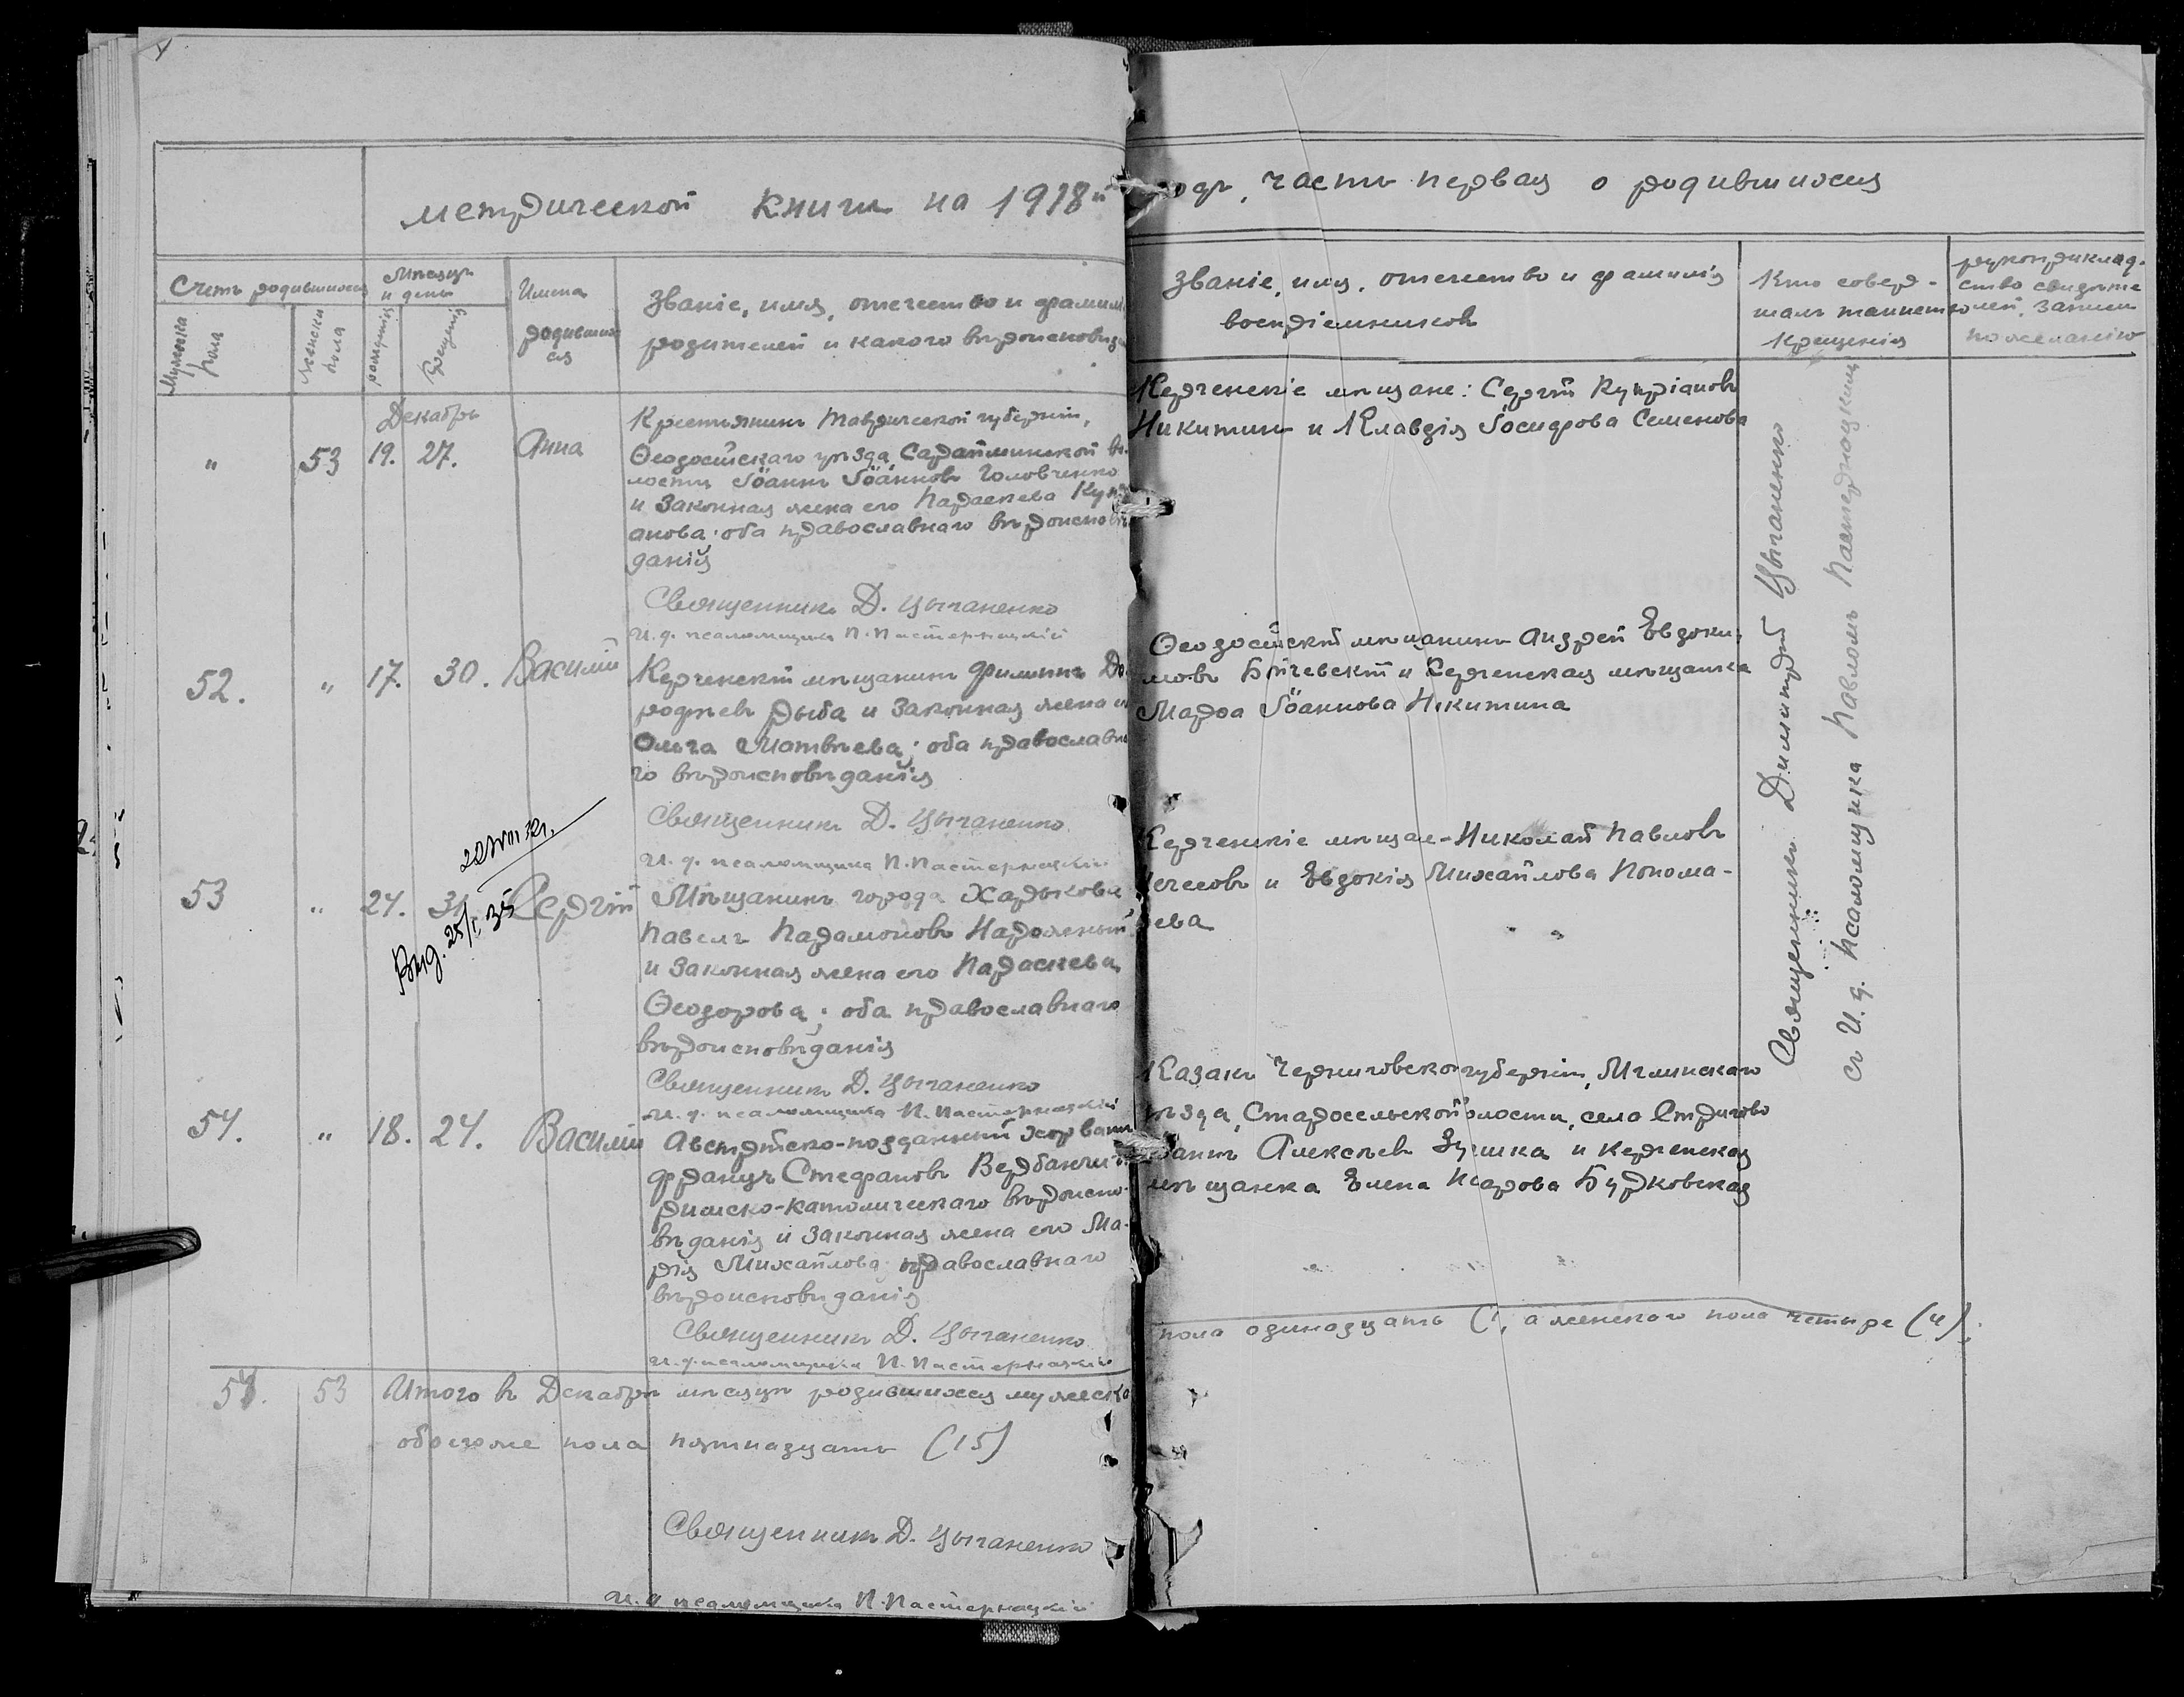 метрической книги на 1918й
годъ, часть первая о родившихся
Счетъ родившихся
Мужска пола
Женска пола
Мѣсяцъ и день
рожденія
крещенія
Имена родивших ся
Званіе, имя, отечество и фамилія
родителей и какого вѣроисповѣда
Званіе, имя, отечество и фамилія
воспріемниковъ
Кто совер-
шалъ таинство
крещенія
рукоприклад-
ство свидѣте
лей записи
по желанію
Декабрь
" 53 19. 27. Анна
Крестьянинъ Таврической губерніи,
Ѳеодосійскаго уѣзда, Сарайминской во-
лости Іоаннъ Іоанновъ Головченко
и законная жена его Параскева Купрі
анова; оба православнаго вѣроисповѣ
данія
Священникъ Д. Цыганенко
И. д. псаломщика П. Пастернацкій
Керченскіе мѣщане: Сергій Купріановъ
Никитинъ и Клавдія Іосифова Семенова
52. " 17. 30. Василій
Керченскій мѣщанинъ Филиппъ До
рофѣевъ Рыба и законная жена е
Ольга Матвѣева; оба православна
го вѣроисповѣданія
Священникъ Д. Цыганенко
И. д. псаломщика П. Пастернацкій
Ѳеодосійскій мѣщанинъ Андрей Евдоки-
мовъ Бѣичевскій и Керченская мѣщанка
Марѳа Іоаннова Никитина
53 " 24. 31. Сергій
Выд. 25/I 35
Мѣщанинъ города Харькова
Павелъ Парамоновъ Нарожный
и законная жена его Параскева
Ѳеодорова; оба православнаго
вѣроисповѣданія
Священникъ Д. Цыганенко
И. д. псаломщика П. Пастернацкій
Керченскіе мѣщане - Николай Павловъ
и Евдокія Михайлова Понома-
рева
54. " 18. 24. Василій
Австрійско-подданный Хорватъ
Францъ Стефановъ Вербанчичъ
римско-католическаго вѣроиспо-
вѣданія и законная жена его Ма-
рія Михайлова православнаго
вѣроисповѣданія
Священникъ Д. Цыганенко
И. д. псаломщика П. Пастернацкій
Казакъ Черниговской губерніи, Мглинскаго
уѣзда, Старосельской волости, села Стригово
Іоаннъ Алексѣевъ и Керченская
мѣщанка Елена Бурковская
Священникъ Димитрій Цыганенко
съ И. д. псаломщика Павломъ Пастернацкимъ
54. 53 Итого въ Декабрѣ мѣсяцѣ родившихся мужска
пола одинадцать (, а женскаго пола четыре (4),
обоегоже пола пятнадцать (15)
Священникъ Д. Цыганенко
И. д. псаломщика П. Пастернацкій